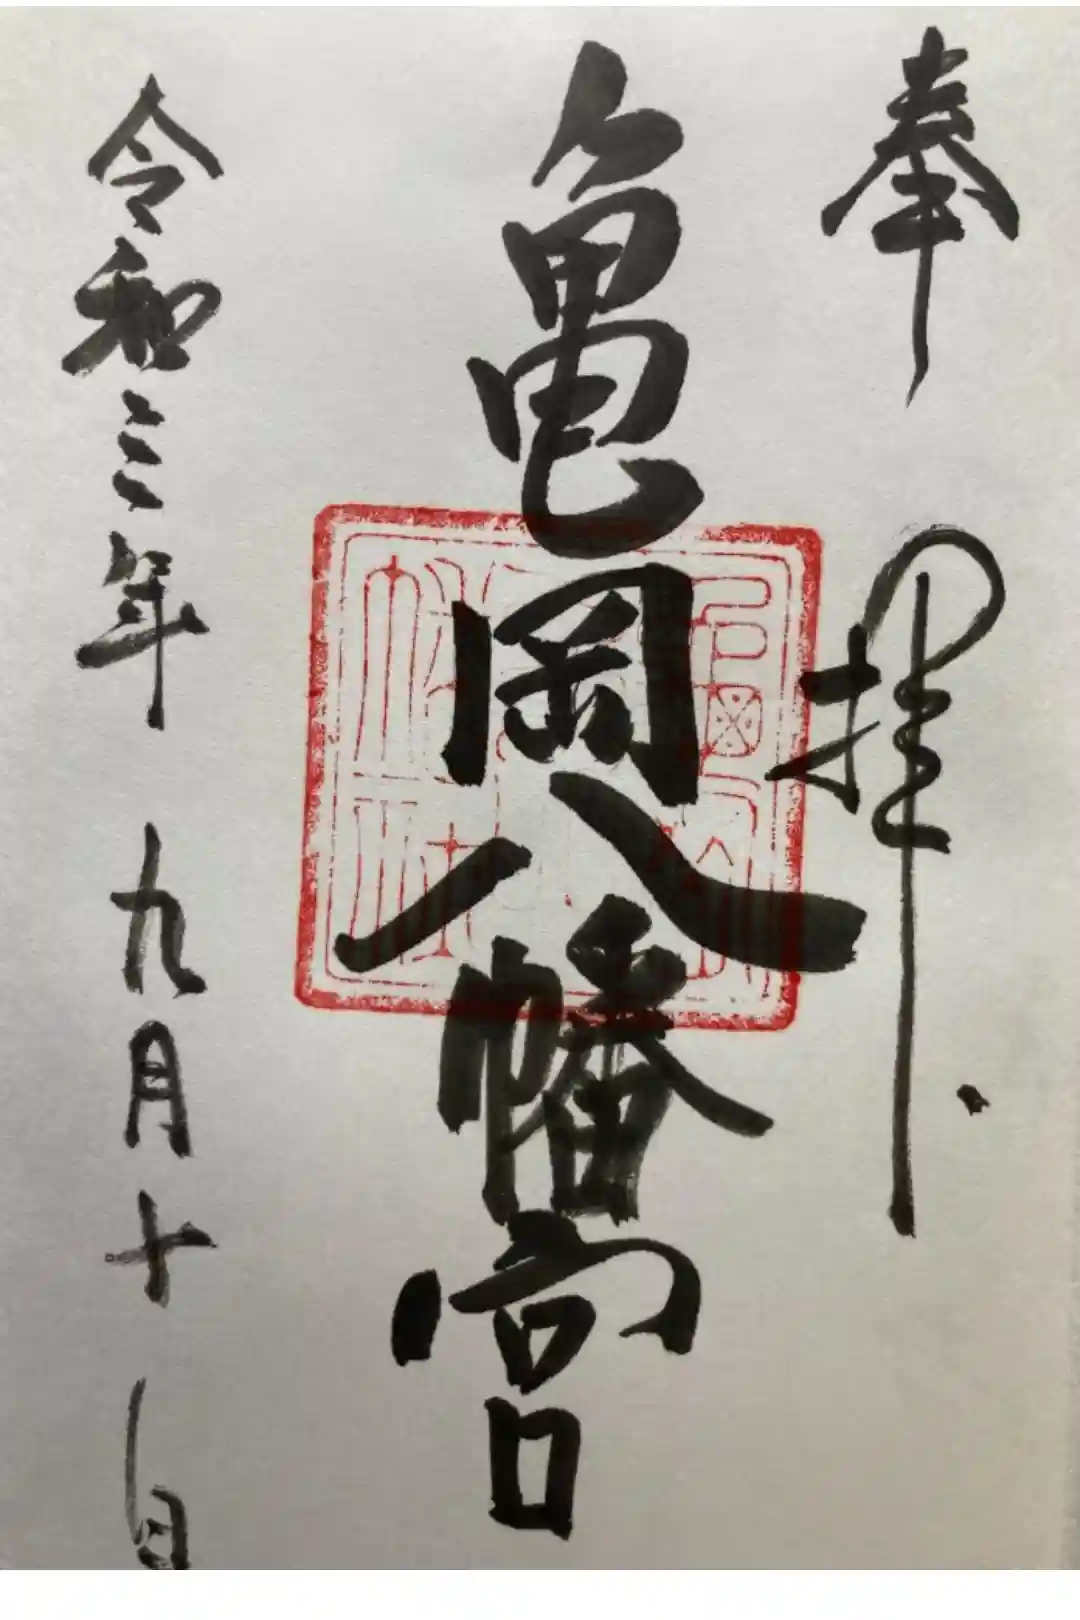 奉拝
亀岡八幡宮
令和三年九月十一日